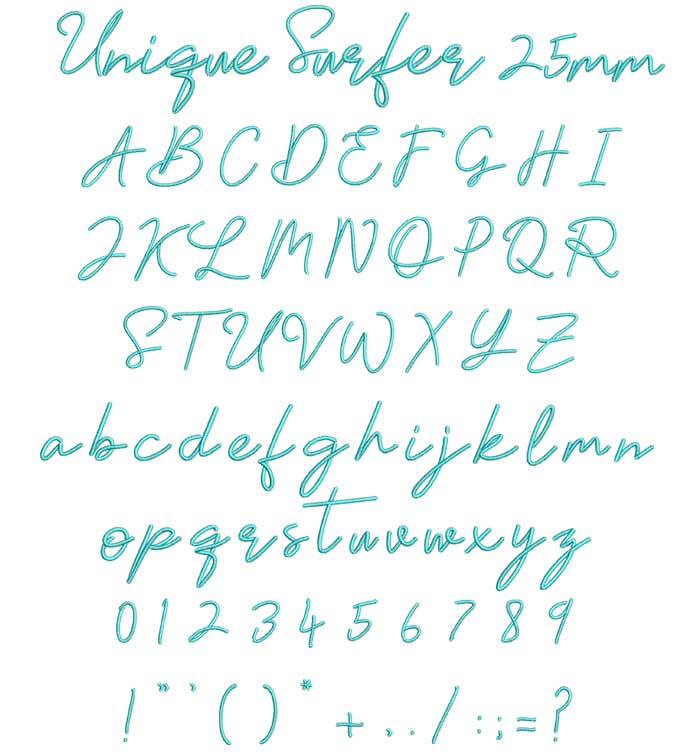 Unique Surfer 25mm
A B C D E F G H I
J K L M N O P Q R
S T U V W X Y Z
a b c d e f g h i j k l m n
o p q r s t u v w x y z
0 1 2 3 4 5 6 7 8 9
! " ' ( ) * + , . / : ; = ?